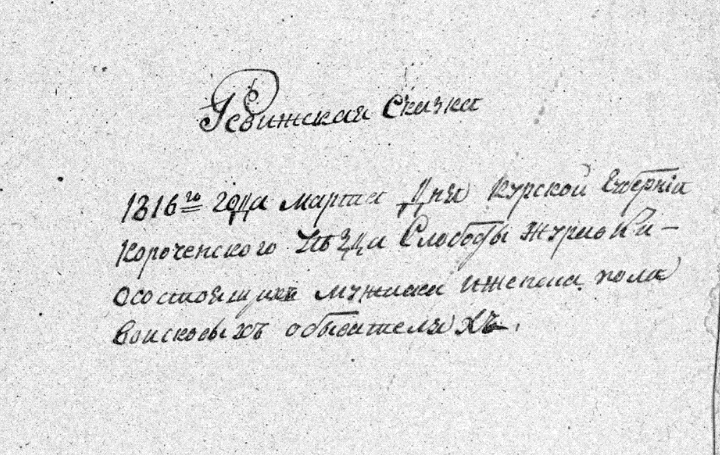 Ревижская Сказка
1816го года марта дня Курской Губерніи
Короченского уѣзда Слободы
Осостоящихъ мужиска ижепска пола
воисковыхъ обывателяхъ.